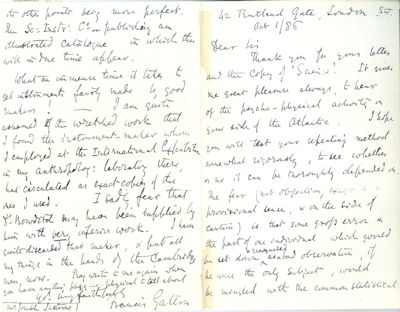 42 Rutland Gate, London SW.
Oct 1/86
Dear Sir
Thank you for your letter
and the Copy of 'Science'. It gives
me great pleasure always, to hear
of the psycho-physical activity on
your side of the Atlantic. I hope
you will test your rejecting method
somewhat rigorously, to see whether
or no it can be thoroughly depended on.
The fear (not objection,
provisional sense, & on the side of
caution) is that some gross error on
the part of one individual which would
be set down, as a bad observation, if
he were the only subject, would
be mingled with the common statistical
its other points being more perfect.
The Sc: Instr: Co. is publishing an
illustrated Catalogue in which this
will in due time appear.
What an immense time it takes to
get instruments fairly made by good
makers! — I am quite
ashamed of the wretched work that
I found the instrument-maker whom
I employed at the International Exhibition
in my anthropolog: laboratory there,
has circulated as exact copies of the
ones I used. I sadly fear that
Dr Bowditch may have been supplied by
him with very inferior work. I have
quite discarded that maker, & put all
my things in the hands of the Cambridge
men, now. Pray write to me again when
you have anything psycho-physical to tell about
Yrs very faithfully
Francis Galton